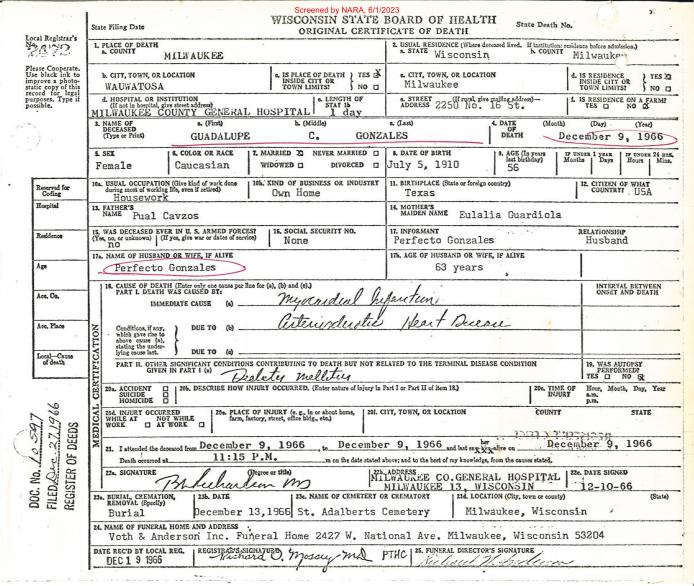 Screened by NARA, 6/1/2023
WISCONSIN STATE BOARD OF HEALTH
ORIGINAL CERTIFICATE OF DEATH
State Filing Date
State Death No.
Local Registrar's
No.
Please Cooperate.
Use black ink to
improve a photo-
static copy of this
record for legal
purposes. Type if
possible.
1. PLACE OF DEATH
a. COUNTY
MILWAUKEE
2. USUAL RESIDENCE (Where deceased lived. If institution: residence before admission.)
a. STATE
Wisconsin
b. COUNTY
Milwaukee
b. CITY, TOWN, OR LOCATION
WAUWATOSA
c. IS PLACE OF DEATH
INSIDE CITY OR
TOWN LIMITS?
YES ☒
NO ☐
c. CITY, TOWN, OR LOCATION
Milwaukee
d. IS RESIDENCE
INSIDE CITY OR
TOWN LIMITS?
YES ☒
NO ☐
d. HOSPITAL OR INSTITUTION
(If not in hospital, give street address)
MILWAUKEE COUNTY GENERAL HOSPITAL
e. LENGTH OF
STAY in 1b
1 day
e. STREET (If rural, give mailing address)
ADDRESS 2250 No. 16 St.
f. IS RESIDENCE ON A FARM?
YES ☐ NO ☒
3. NAME OF
DECEASED
(Type or Print)
a. (First) b. (Middle) c. (Last)
GUADALUPE C. GONZALES
4. DATE
OF
DEATH
(Month) (Day) (Year)
December 9, 1966
5. SEX
Female
6. COLOR OR RACE
Caucasian
7. MARRIED ☒ NEVER MARRIED ☐
WIDOWED ☐ DIVORCED ☐
8. DATE OF BIRTH
July 5, 1910
9. AGE (In years
last birthday)
56
IF UNDER 1 YEAR
Months Days
IF UNDER 24 HRS.
Hours Mins.
10a. USUAL OCCUPATION (Give kind of work done
during most of working life, even if retired)
Housework
10b. KIND OF BUSINESS OR INDUSTRY
Own Home
11. BIRTHPLACE (State or foreign country)
Texas
12. CITIZEN OF WHAT
COUNTRY? USA
13. FATHER'S
NAME Pual Cavzos
14. MOTHER'S
MAIDEN NAME Eulalia Guardiola
15. WAS DECEASED EVER IN U.S. ARMED FORCES?
(Yes, no, or unknown) (If yes, give war or dates of service)
no
16. SOCIAL SECURITY NO.
None
17. INFORMANT
Perfecto Gonzales
RELATIONSHIP
Husband
17a. NAME OF HUSBAND OR WIFE, IF ALIVE
Perfecto Gonzales
17b. AGE OF HUSBAND OR WIFE, IF ALIVE
63 years
Reserved for
Coding
Hospital
Residence
Age
Acc. Co.
Acc. Place
Local—Cause
of death
MEDICAL CERTIFICATION
18. CAUSE OF DEATH (Enter only one cause per line for (a), (b) and (c).)
PART I. DEATH WAS CAUSED BY:
IMMEDIATE CAUSE (a) Myocardial Infarction
INTERVAL BETWEEN
ONSET AND DEATH
Conditions, if any,
which gave rise to
above cause (a),
stating the under-
lying cause last.
DUE TO (b) Arteriosclerotic Heart Disease
DUE TO (c)
PART II. OTHER SIGNIFICANT CONDITIONS CONTRIBUTING TO DEATH BUT NOT RELATED TO THE TERMINAL DISEASE CONDITION
GIVEN IN PART I (a)
Diabetes mellitus
19. WAS AUTOPSY
PERFORMED?
YES ☐ NO ☒
20a. ACCIDENT ☐
SUICIDE ☐
HOMICIDE ☐
20b. DESCRIBE HOW INJURY OCCURRED. (Enter nature of injury in Part I or Part II of item 18.)
20c. TIME OF
INJURY
Hour, Month, Day, Year
a.m.
p.m.
20d. INJURY OCCURRED
WHILE AT NOT WHILE
WORK ☐ AT WORK ☐
20e. PLACE OF INJURY (e. g., in or about home,
farm, factory, street, office bldg., etc.)
20f. CITY, TOWN, OR LOCATION COUNTY STATE
21. I attended the deceased from December 9, 1966, to December 9, 1966 and last saw her alive on December 9, 1966
Death occurred at 11:15 P.M. m on the date stated above; and to the best of my knowledge, from the causes stated.
22a. SIGNATURE (Degree or title)
22b. ADDRESS
MILWAUKEE CO.GENERAL HOSPITAL
MILWAUKEE 13, WISCONSIN
22c. DATE SIGNED
12-10-66
23a. BURIAL, CREMATION,
REMOVAL (Specify)
Burial
23b. DATE
December 13,1966
23c. NAME OF CEMETERY OR CREMATORY
St. Adalberts Cemetery
23d. LOCATION (City, town or county) (State)
Milwaukee, Wisconsin
24. NAME OF FUNERAL HOME AND ADDRESS
Voth & Anderson Inc. Funeral Home 2427 W. National Ave. Milwaukee, Wisconsin 53204
DATE REC'D BY LOCAL REG.
DEC 19 1966
REGISTRAR'S SIGNATURE
PTHC
25. FUNERAL DIRECTOR'S SIGNATURE
DOC. No. 10597
FILED Dec. 27, 1966
REGISTER OF DEEDS